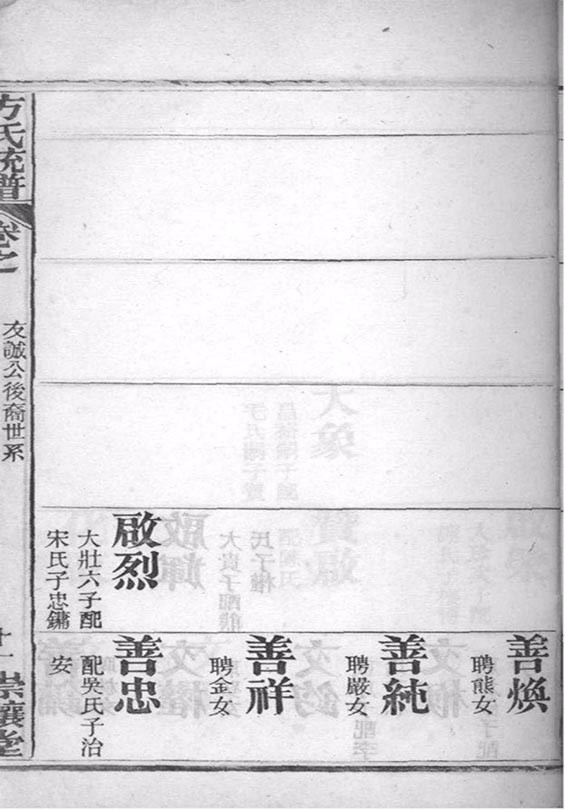 啟烈
大壯六子配
宋氏子忠鏞
善煥
聘熊女
善純
聘嚴女
善祥
聘金女
善忠
配吳氏子治
安
方氏統譜
卷之
友誠公後裔世系
十一
崇讓堂